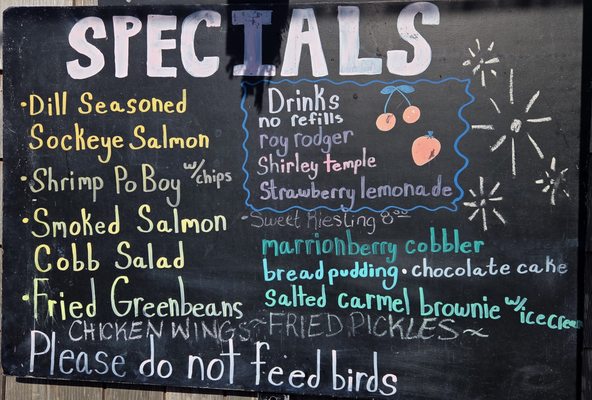 SPECIALS
• Dill Seasoned
Sockeye Salmon
• Shrimp Po Boy w/ chips
• Smoked Salmon
Cobb Salad
• Fried Greenbeans
Drinks
no refills
roy rodger
Shirley temple
Strawberry lemonade
• Sweet Riesling 8⁰⁰
marrionberry cobbler
bread pudding • chocolate cake
salted carmel brownie w/ ice cream
CHICKEN WINGS ~ FRIED PICKLES ~
Please do not feed birds